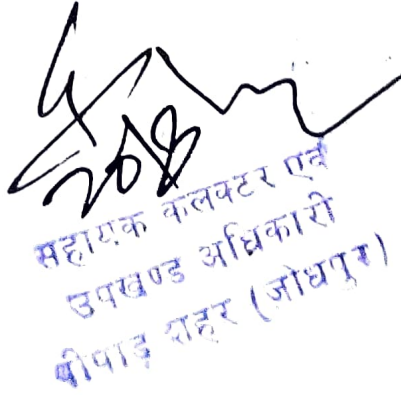 208
सहायक कलक्टर एवं
उपखण्ड अधिकारी
पीपाड़ शहर (जोधपुर)